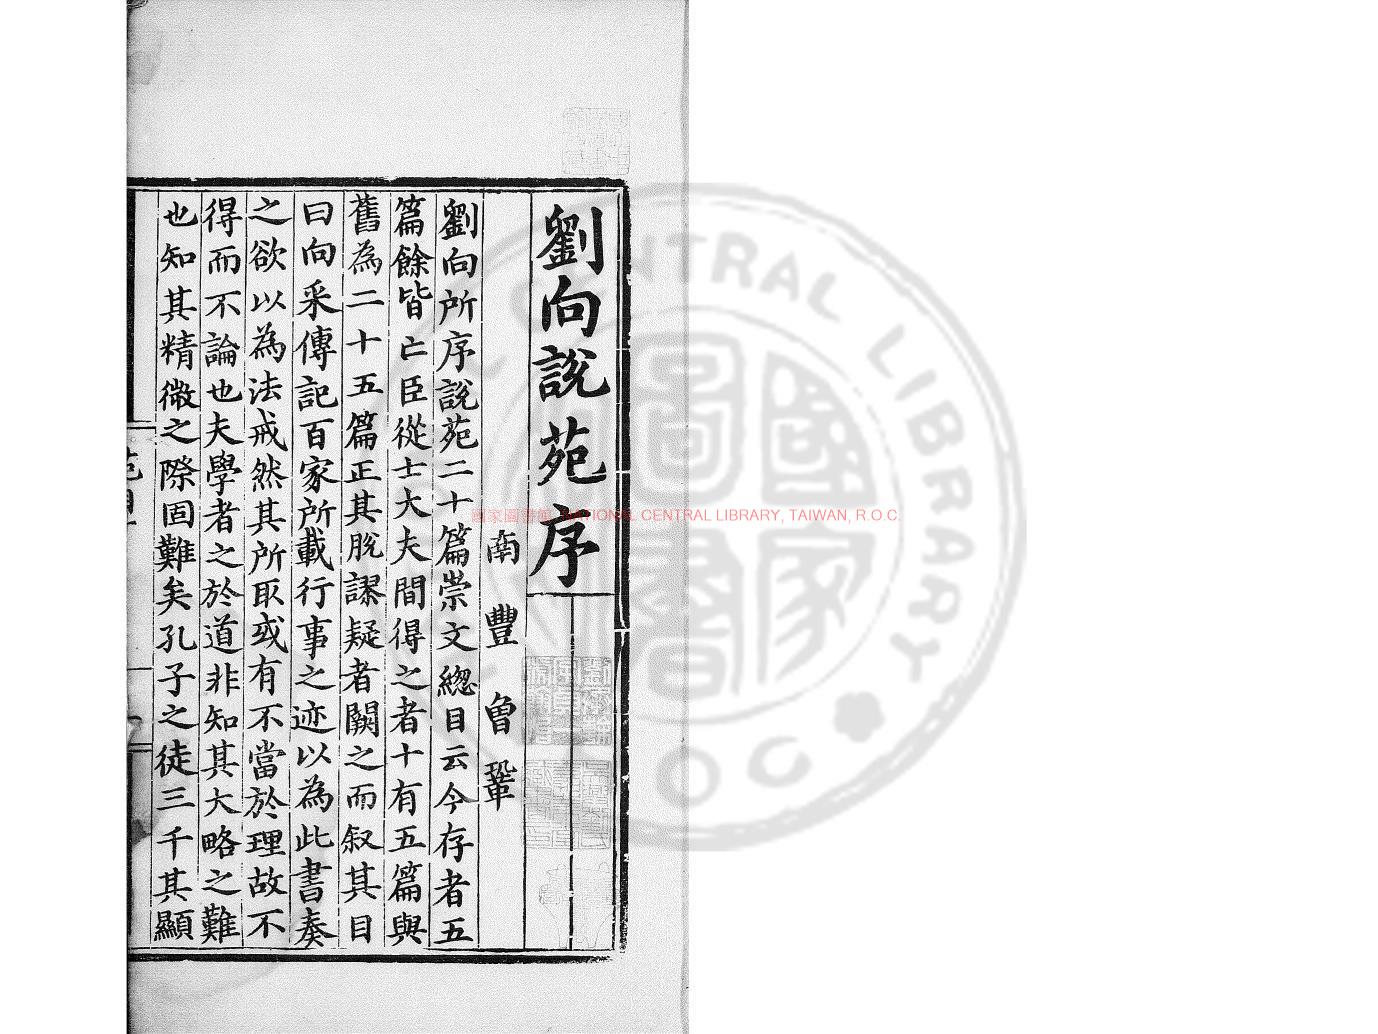 劉向說苑序
南豐曾鞏
劉向所序說苑二十篇崇文緫目云今存者五
篇餘皆亡臣從士大夫間得之者十有五篇與
舊為二十五篇正其脫謬疑者闕之而叙其目
曰向采傳記百家所載行事之迹以為此書奏
之欲以為法戒然其所取或有不當於理故不
得而不論也夫學者之於道非知其大略之難
也知其精微之際固難矣孔子之徒三千其顯
國家圖書館 NATIONAL CENTRAL LIBRARY, TAIWAN, R.O.C.
CENTRAL LIBRARY